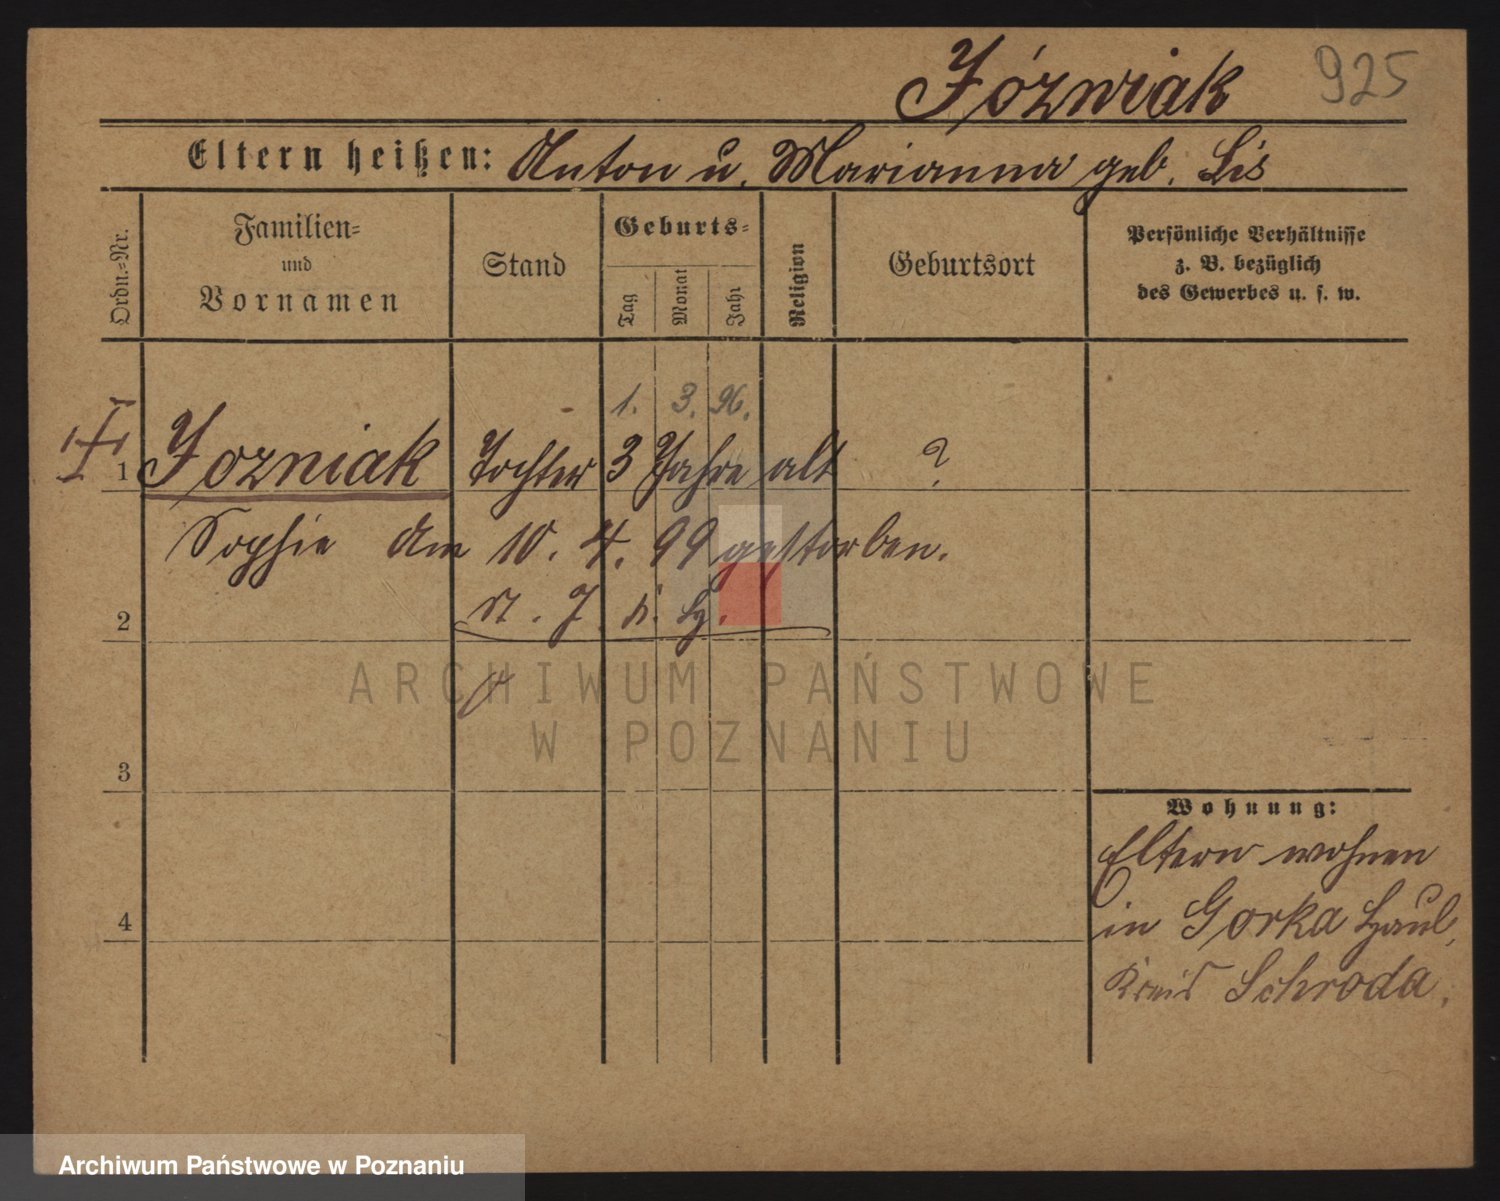 Józwiak 925
Eltern heißen: Anton u. Marianna geb. Lis
Ordn.=Nr.
Familien=
und
Vornamen
Stand
Geburts=
Tag
Monat
Jahr
Religion
Geburtsort
Persönliche Verhältnisse
z. B. bezüglich
des Gewerbes u. s. w.
1. 3. 96.
1 Jozniak Tochter 3 Jahre alt ?
Sophie Am 10. 4. 99 gestorben.
2
3
4
Wohnung:
Eltern wohnen
in Gorka Haul,
Kreis Schroda.
ARCHIWUM PAŃSTWOWE
W POZNANIU
Archiwum Państwowe w Poznaniu